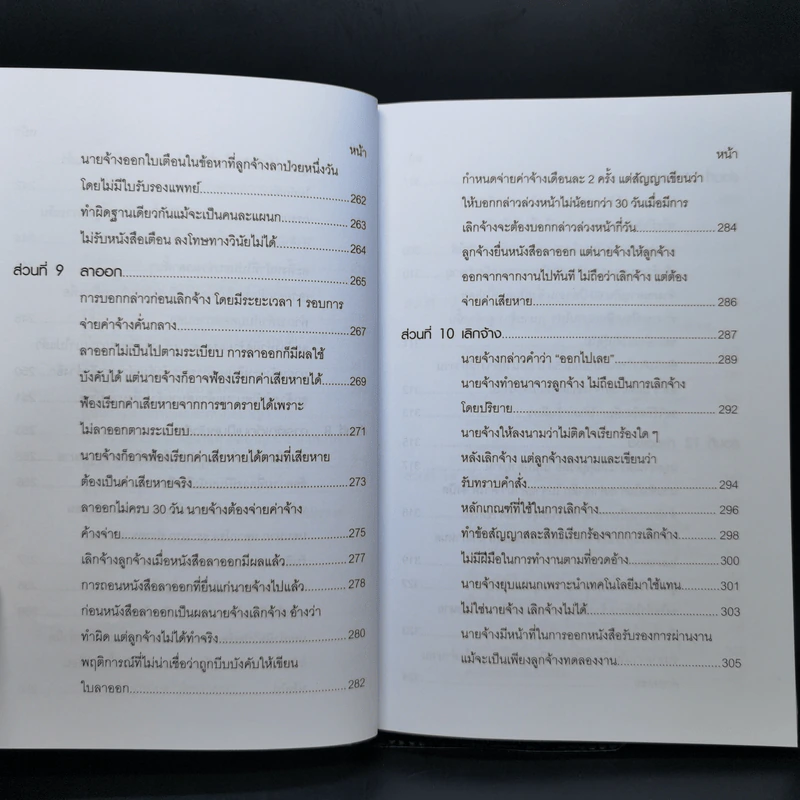 หน้า
นายจ้างออกใบเตือนในข้อหาที่ลูกจ้างลาป่วยหนึ่งวัน
โดยไม่มีใบรับรองแพทย์ 262
ทำผิดฐานเดียวกันแม้จะเป็นคนละแผนก 263
ไม่รับหนังสือเตือน ลงโทษทางวินัยไม่ได้ 264
ส่วนที่ 9 ลาออก 265
การบอกกล่าวก่อนเลิกจ้าง โดยมีระยะเวลา 1 รอบการ
จ่ายค่าจ้างคั่นกลาง 267
ลาออกไม่เป็นไปตามระเบียบ การลาออกก็มีผลใช้
บังคับได้ แต่นายจ้างก็อาจฟ้องเรียกค่าเสียหายได้ 269
ฟ้องเรียกค่าเสียหายจากการขาดรายได้เพราะ
ไม่ลาออกตามระเบียบ 271
นายจ้างก็อาจฟ้องเรียกค่าเสียหายได้ตามที่เสียหาย
ต้องเป็นค่าเสียหายจริง 273
ลาออกไม่ครบ 30 วัน นายจ้างต้องจ่ายค่าจ้าง
ค้างจ่าย 275
เลิกจ้างลูกจ้างเมื่อหนังสือลาออกมีผลแล้ว 277
การถอนหนังสือลาออกที่ยื่นแก่นายจ้างไปแล้ว 278
ก่อนหนังสือลาออกเป็นผลนายจ้างเลิกจ้าง อ้างว่า
ทำผิด แต่ลูกจ้างไม่ได้ทำจริง 280
พฤติการณ์ที่ไม่น่าเชื่อว่าถูกบีบบังคับให้เขียน
ใบลาออก 282
หน้า
กำหนดจ่ายค่าจ้างเดือนละ 2 ครั้ง แต่สัญญาเขียนว่า
ให้บอกกล่าวล่วงหน้าไม่น้อยกว่า 30 วันเมื่อมีการ
เลิกจ้างจะต้องบอกกล่าวล่วงหน้ากี่วัน 284
ลูกจ้างยื่นหนังสือลาออก แต่นายจ้างให้ลูกจ้าง
ออกจากจากงานไปทันที ไม่ถือว่าเลิกจ้าง แต่ต้อง
จ่ายค่าเสียหาย 286
ส่วนที่ 10 เลิกจ้าง 287
นายจ้างกล่าวคำว่า “ออกไปเลย” 289
นายจ้างทำอนาจารลูกจ้าง ไม่ถือเป็นการเลิกจ้าง
โดยปริยาย 292
นายจ้างให้ลงนามว่าไม่ติดใจเรียกร้องใด ๆ
หลังเลิกจ้าง แต่ลูกจ้างลงนามและเขียนว่า
รับทราบคำสั่ง 294
หลักเกณฑ์ที่ใช้ในการเลิกจ้าง 296
ทำข้อสัญญาสละสิทธิเรียกร้องจากการเลิกจ้าง 298
ไม่มีฝีมือในการทำงานตามที่อวดอ้าง 300
นายจ้างยุบแผนกเพราะนำเทคโนโลยีมาใช้แทน 301
ไม่ใช่นายจ้าง เลิกจ้างไม่ได้ 303
นายจ้างมีหน้าที่ในการออกหนังสือรับรองการผ่านงาน
แม้จะเป็นเพียงลูกจ้างทดลองงาน 305